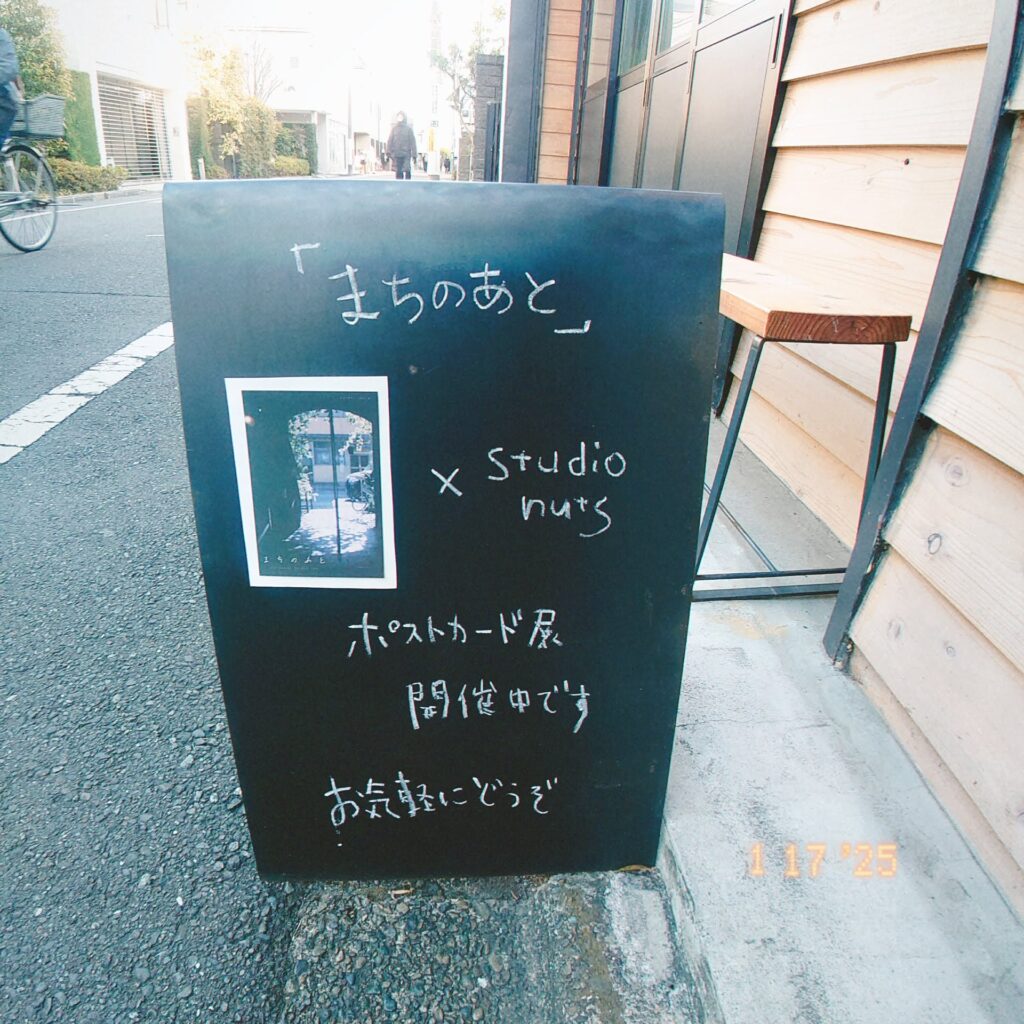 「まちのあと」
まちのあと
× studio
nuts
ポストカード展
開催中です
お気軽にどうぞ
1 17 '25